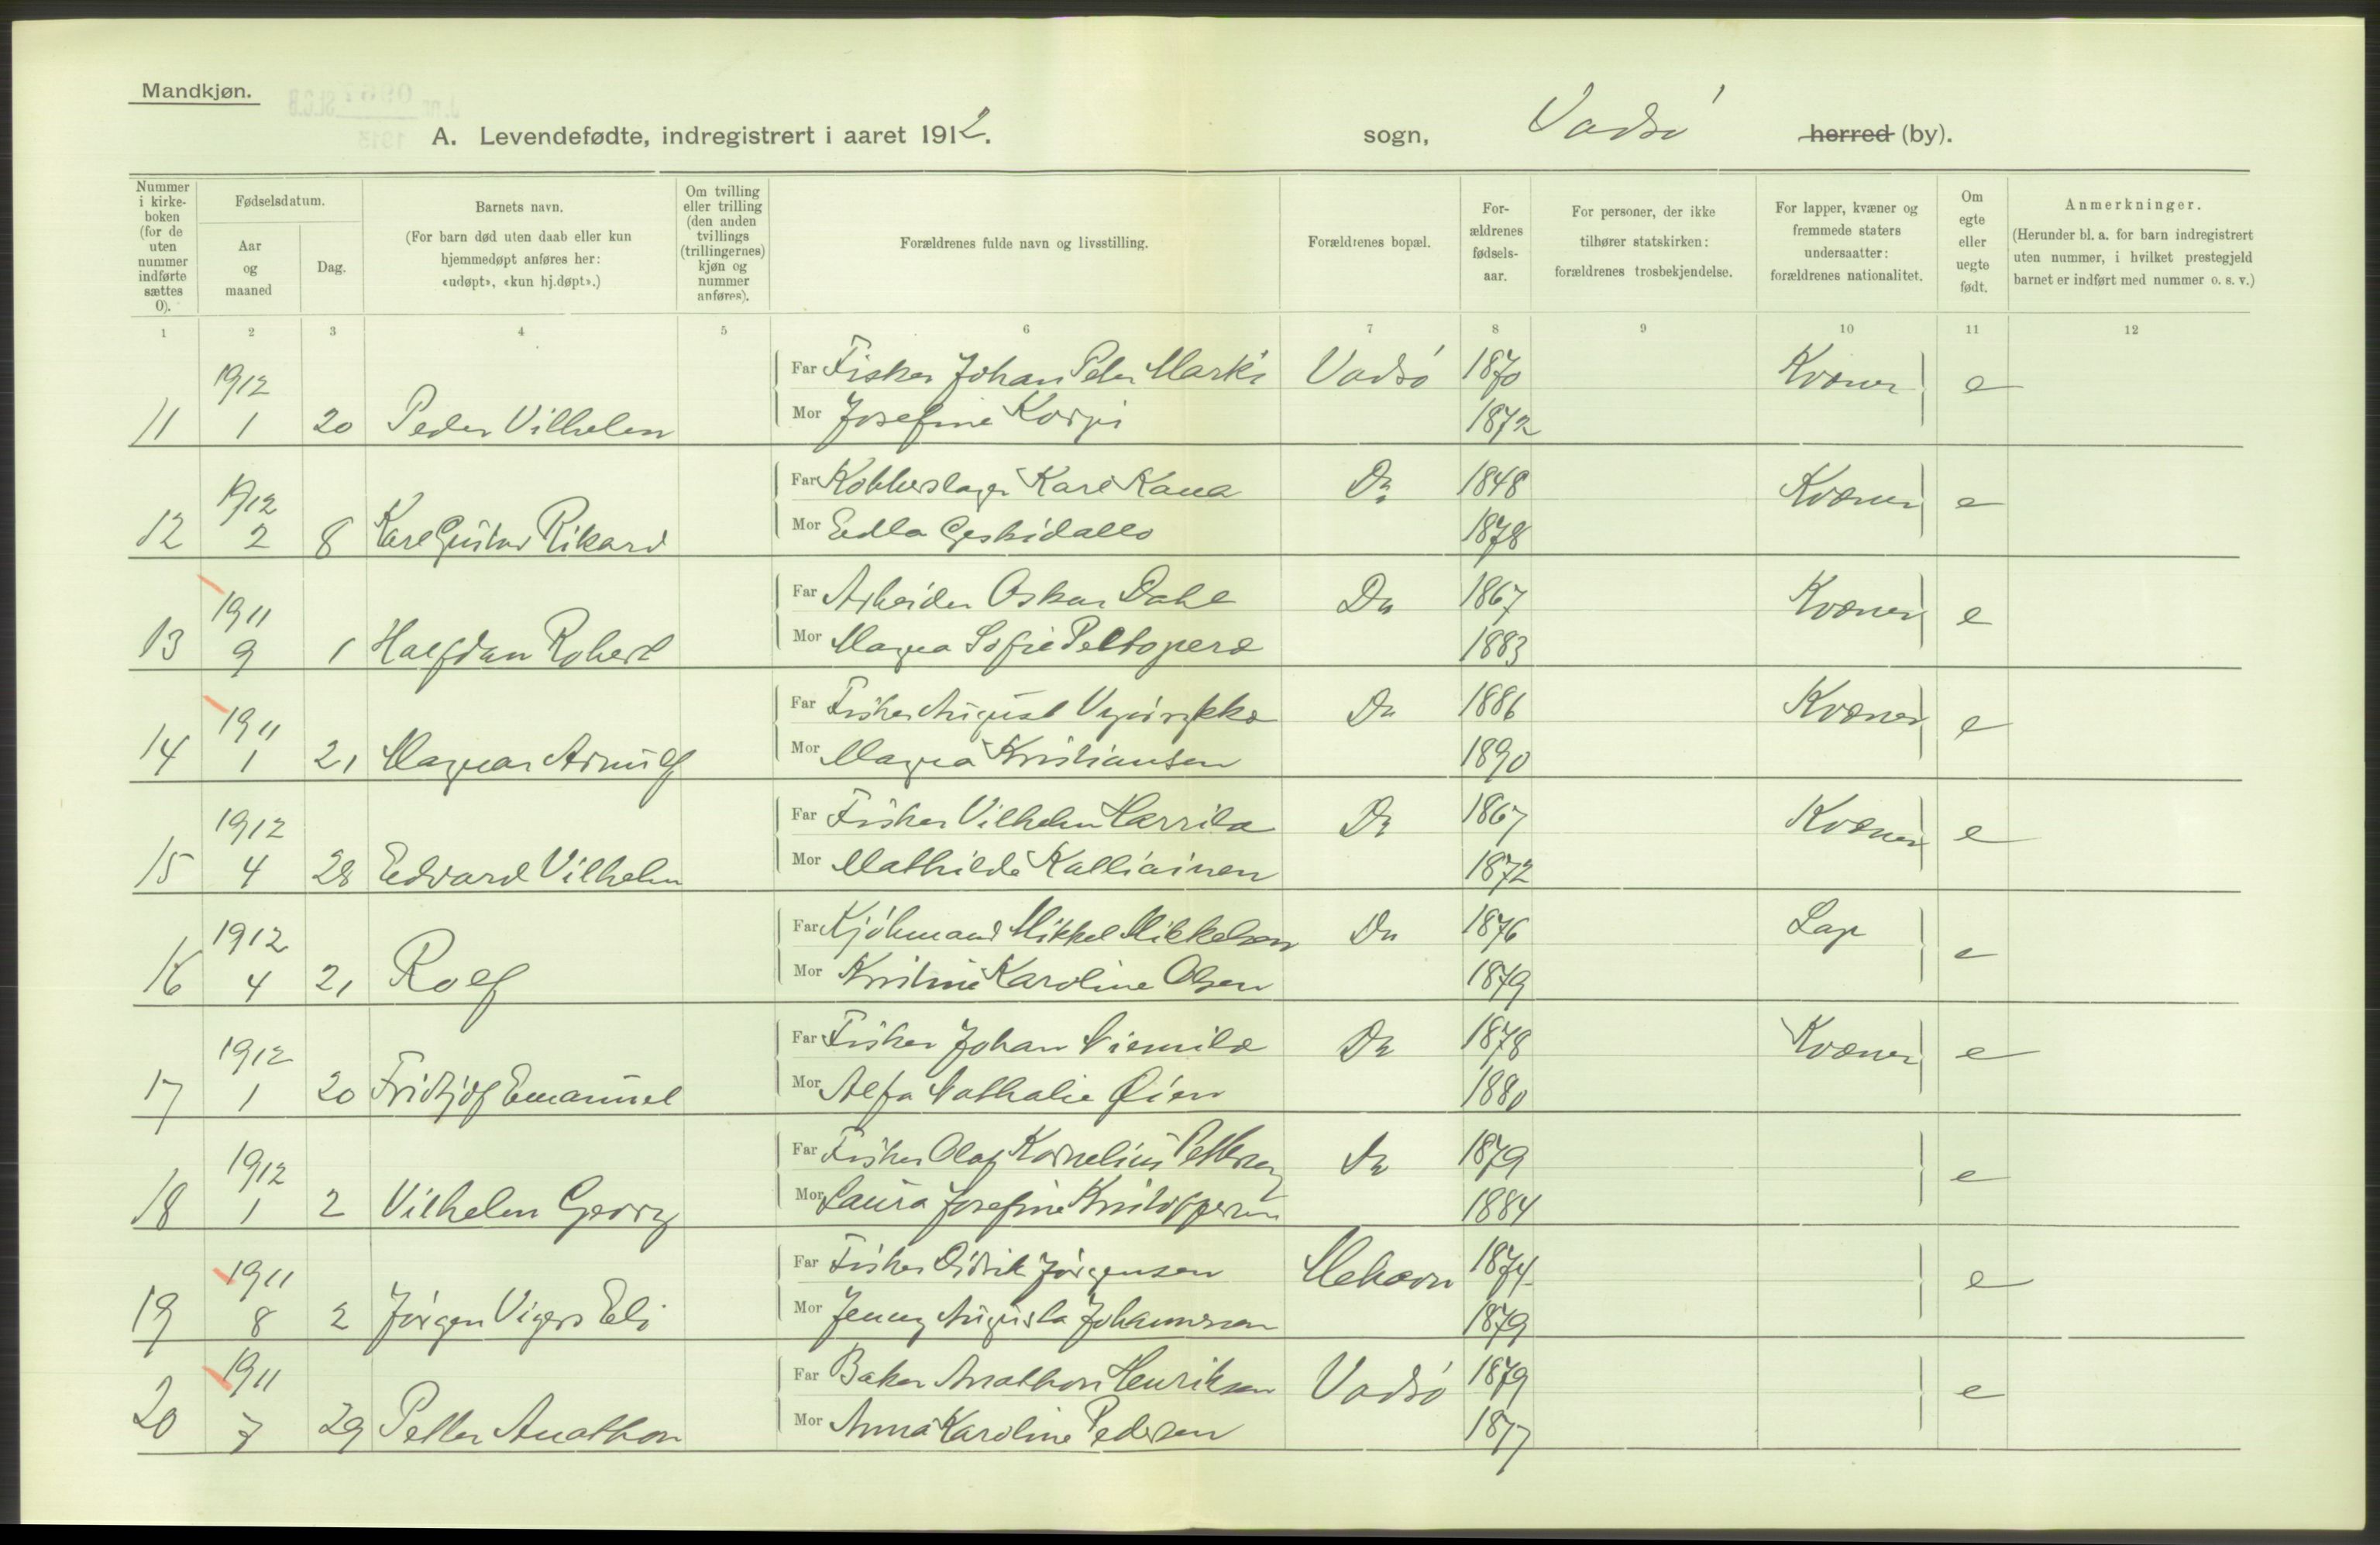 Mandkjøn.
A. Levendefødte, indregistrert i aaret 1912. sogn, Vadsø herred (by).
Nummer i kirkeboken (for de uten nummer indførte sættes 0).
Fødselsdatum.
Aar og maaned
Dag.
Barnets navn.
(For barn død uten daab eller kun hjemmedøpt anføres her: «udøpt», «kun hj.døpt».)
Om tvilling eller trilling (den anden tvillings (trillingernes) kjøn og nummer anføres).
Forældrenes fulde navn og livsstilling.
Forældrenes bopæl.
Forældrenes fødselsaar.
For personer, der ikke tilhører statskirken: forældrenes trosbekjendelse.
For lapper, kvæner og fremmede staters undersaatter: forældrenes nationalitet.
Om egte eller uegte født.
Anmerkninger.
(Herunder bl. a. for barn indregistrert uten nummer, i hvilket prestegjeld barnet er indført med nummer o. s. v.)
1 2 3 4 5 6 7 8 9 10 11 12
1912 Far Fisker Johan Peder Marki Vadsø 1870 Kvæner e
11 1 20 Peder Vilhelm Mor Josefine Korpi 1872
1912 Far Kobberslager Karl Kana Do 1848 Kvæner e
12 2 8 Karl Gustav Rikard Mor Edla 1878
1911 Far Arbeider Oskar Dahl Do 1867 Kvæner e
13 9 1 Halfdan Robert Mor Magna Sofie Peltopera 1883
1911 Far Fisker August Do 1886 Kvæner e
14 1 21 Magnar Arnulf Mor Magna Kristiansen 1890
1912 Far Fisker Vilhelm Harrila Do 1867 Kvæner e
15 4 28 Edvard Vilhelm Mor Mathilde Kalliainen 1872
1912 Far Kjøbmand Mikkel Mikkelsen Do 1876 Lap e
16 4 21 Rolf Mor Kristine Karoline Olsen 1879
1912 Far Fisker Johan Niemilæ Do 1878 Kvæner e
17 1 20 Fridtjof Emanuel Mor Alfa Nathalie Øien 1880
1912 Far Fisker Olaf Kornelius Pettersen Do 1879 e
18 1 2 Vilhelm Georg Mor Laura Josefine Kristoffersen 1884
1911 Far Fisker Didrik Jørgensen Mehavn 1874 e
19 8 2 Jørgen Vigers Eli Mor Jenny Augusta Johannesen 1879
1911 Far Baker Anathon Henriksen Vadsø 1879 e
20 7 29 Petter Anathon Mor Anna Karoline Pedersen 1877